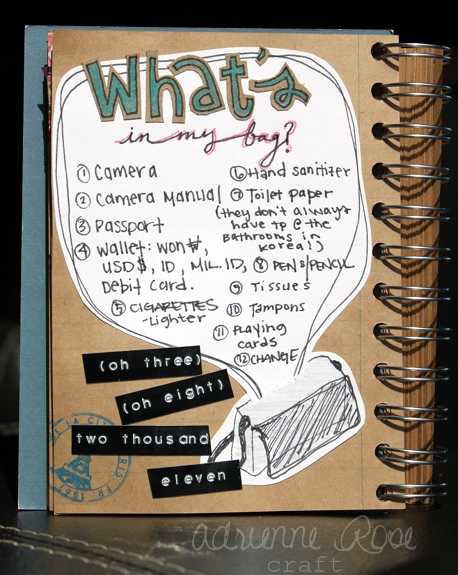 What's
in my bag?
① Camera
② Camera Manual
③ Passport
④ Wallet: Won ₩,
USD $, ID, MIL. ID,
Debit Card.
⑤ CIGARETTES
-Lighter
⑥ Hand sanitizer
⑦ Toilet paper
(they don't always
have tp @ the
bathrooms in
Korea!)
⑧ PENS/PENCIL
⑨ Tissues
⑩ Tampons
⑪ Playing
cards
⑫ CHANGE
(oh three)
(oh eight)
two thousand
eleven
adrienne Rose
craft